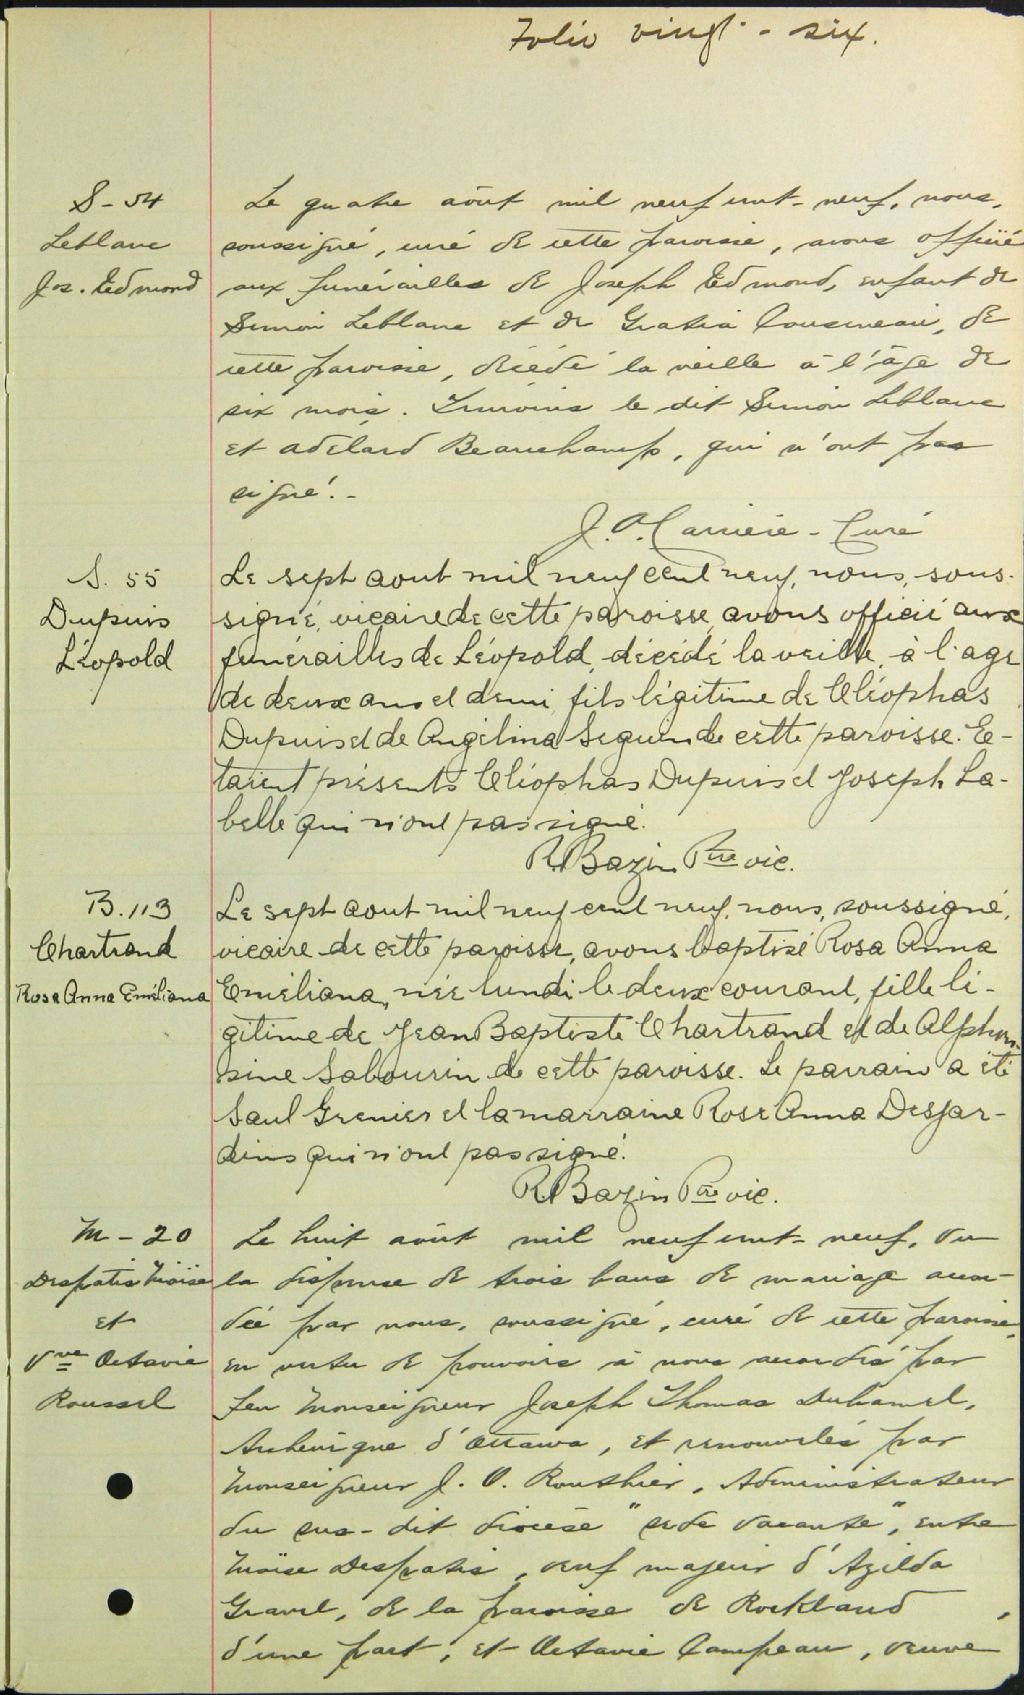 Folio vingt-six.
S-54
Leblanc
Jos. Edmond
Le quatre août mil neuf cent-neuf, nous,
soussigné, curé de cette paroisse, avons officié
aux funérailles de Joseph Edmond, enfant de
Simon Leblanc et de Gratia Cousineau, de
cette paroisse, décédé la veille à l'âge de
six mois. Témoins le dit Simon Leblanc
et Adélard Beauchamp, qui n'ont pas
signé.-
J. O. Carrière - Curé
S. 55
Dupuis
Léopold
Le sept aout mil neuf cent neuf, nous, sous-
signé, vicaire de cette paroisse, avons officié aux
funérailles de Léopold, décédé la veille, à l'age
de deux ans et demi, fils légitime de Cléophas
Dupuis et de Angélina Seguin de cette paroisse. E-
taient présents Cléophas Dupuis et Joseph La-
belle qui n'ont pas signé.
R. Bazin Ptre vic.
B. 113
Chartrand
Rosa Anna Emiliana
Le sept aout mil neuf cent neuf, nous, soussigné,
vicaire de cette paroisse, avons baptisé Rosa Anna
Emeliana, née lundi le deux courant, fille lé-
gitime de Jean Baptiste Chartrand et de Alphon-
sine Sabourin de cette paroisse. Le parrain a été
Saul Grenier et la marraine Rose Anna Desjar-
dins qui n'ont pas signé.
R. Bazin Ptre vic.
M-20
Despatis Moïse
et
Vve Octavie
Roussel
Le huit août mil neuf cent-neuf, vu
la dispense de trois bans de mariage accor-
dée par nous, soussigné, curé de cette paroisse,
en vertu de pouvoirs à nous accordés par
feu Monseigneur Joseph Thomas Duhamel,
Archevêque d'Ottawa, et renouvelés par
Monseigneur J. O. Routhier, Administrateur
du sus-dit diocèse "sede vacante", entre
Moïse Despatis, veuf majeur d'Azilda
Gravel, de la paroisse de Rockland,
d'une part; et Octavie Campeau, veuve